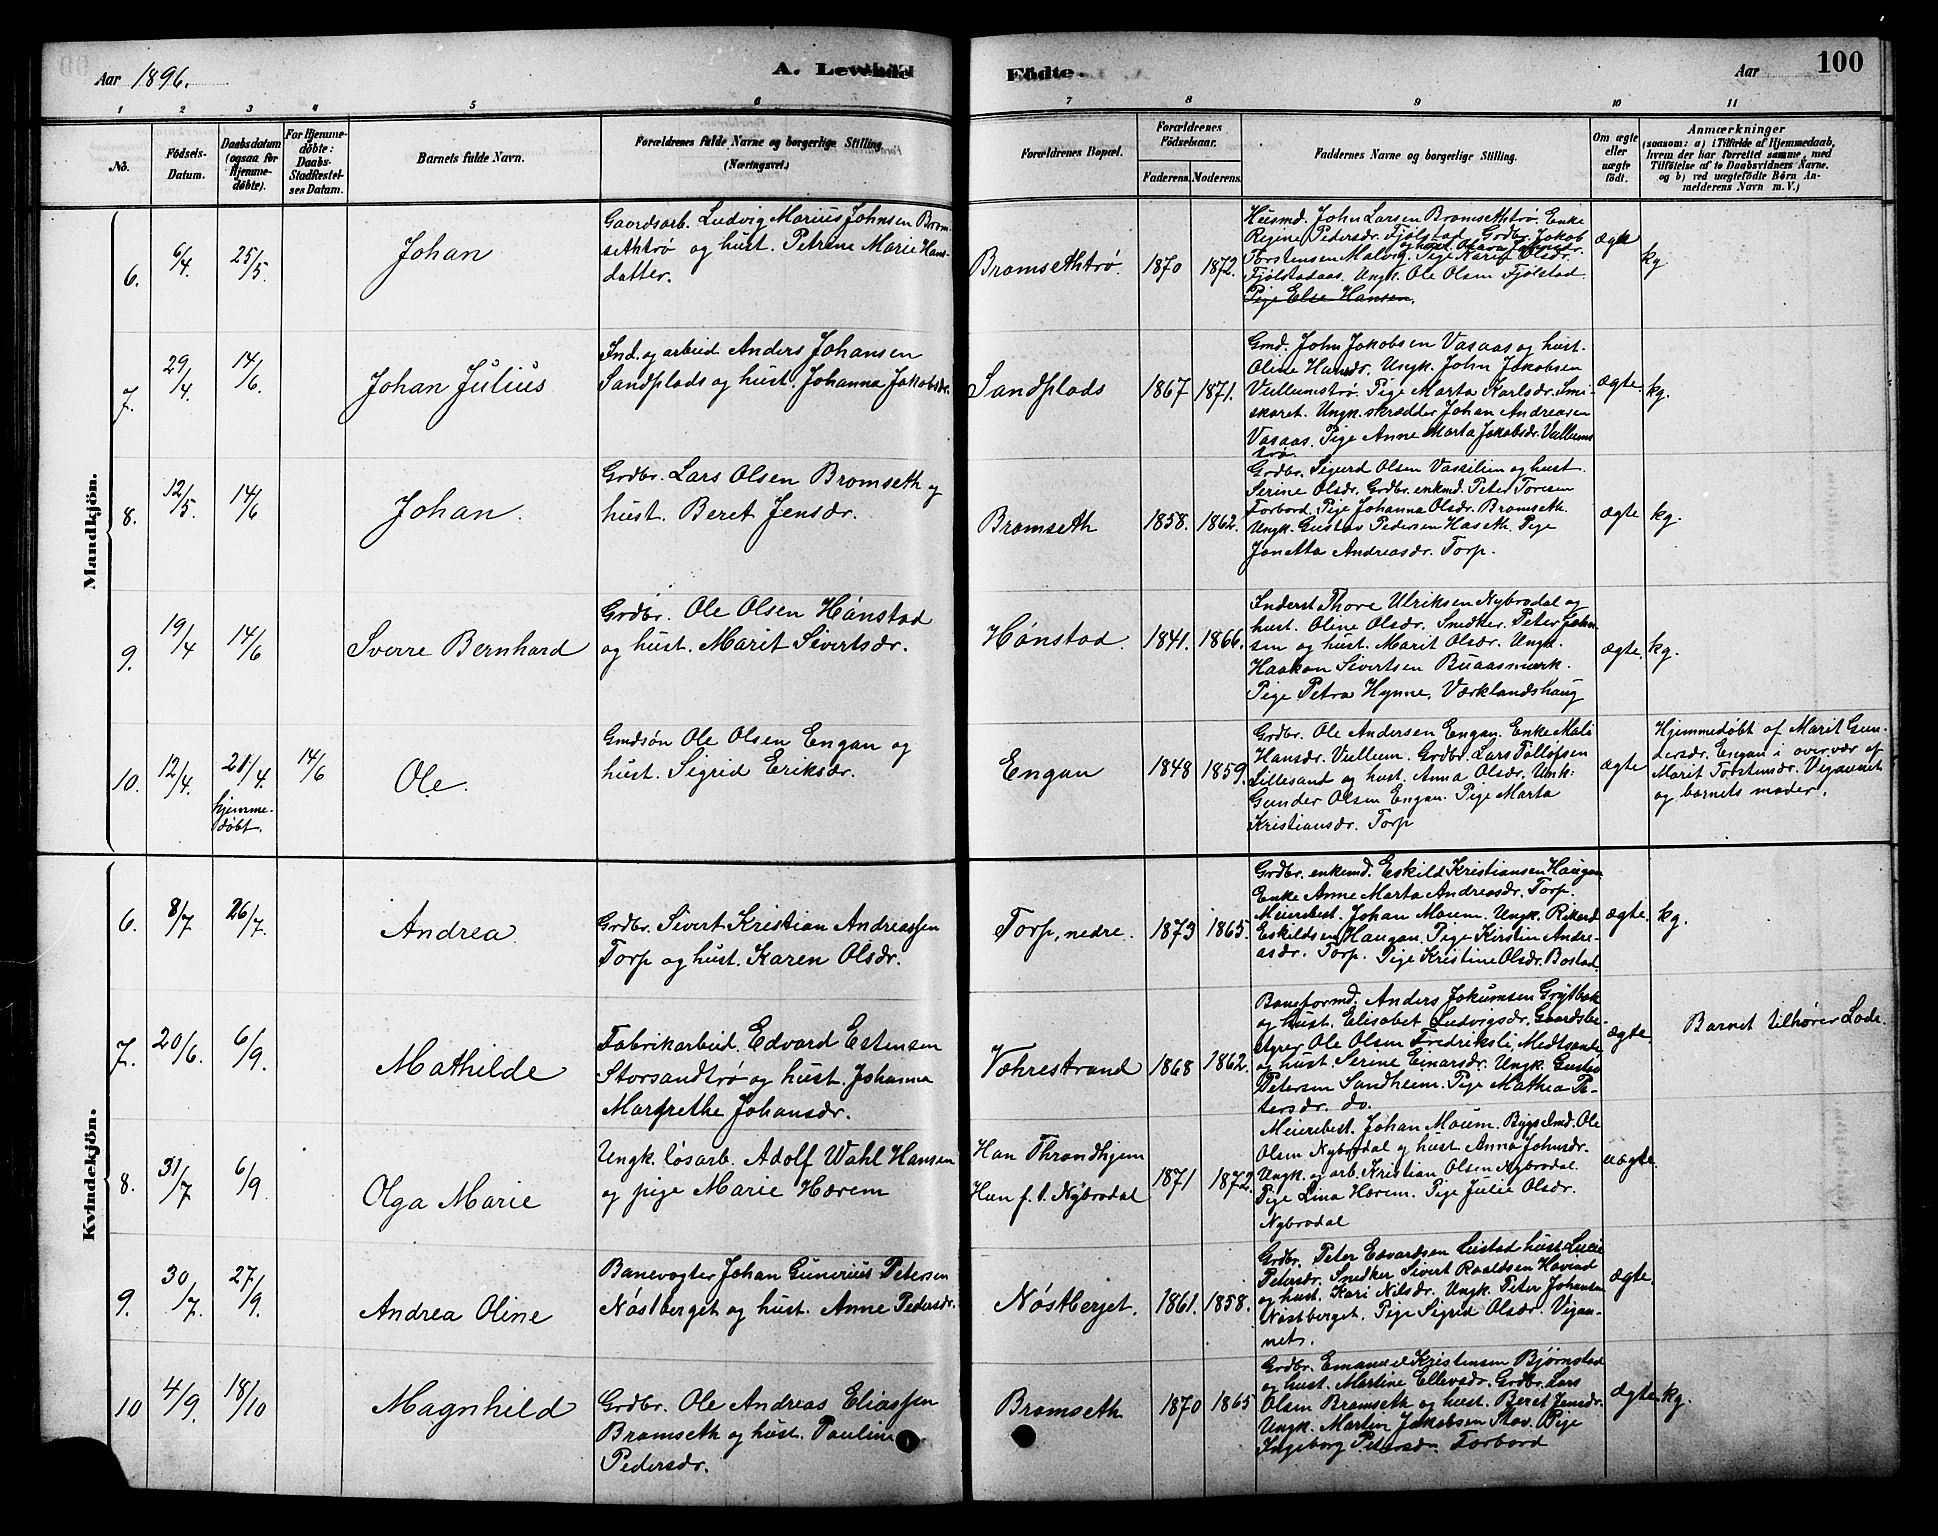 Aar 1896.
A. Levende
Födte.
Aar
100
1 2 3 4 5 6 7 8 9 10 11
No.
Födsels-Datum.
Daabsdatum (ogsaa for Hjemme-döbte).
For Hjemme-döbte: Daabs-Stadfæstel-ses Datum.
Barnets fulde Navn.
Forældrenes fulde Navne og borgerlige Stilling (Næringsvei.)
Forældrenes Bopæl.
Forældrenes Födselsaar.
Faderens. Moderens.
Faddernes Navne og borgerlige Stilling.
Om ægte eller uægte födt.
Anmærkninger
(saasom: a) i Tilfælde af Hjemmedaab,
hvem der har forrettet samme, med
Tilföielse af to Daabsvidners Navne.
og b) ved uægtefödte Børn An-
melderens Navn m. V.)
Mandkjön.
6. 6/4 25/5
Johan
Gaardsarb. Ludvig Marius Johnsen Brom-
sethtrø og hust. Petrine Marie Hans-
datter.
Bromsethtrø. 1870 1872.
Husmd. John Larsen Bromsethtrø. Enke
Regine Pedersdr. Fjølstad. Grdbr. Jakob
Torstensen Malvig og hust. Olava Johnsdr. Pige Marit Olsdr.
Fjølstadaas. Ungk. Ole Olsen Fjølstad.
Pige Else Hansen.
ægte kg
7. 29/4 14/6.
Johan Julius
Ind. og arbeid. Anders Johansen
Sandplads og hust. Johanna Jakobsdr.
Sandplads 1867 1871.
Gmd. John Jakobsen Vasaas og hust.
Oline Hansdr. Ungk. John Jakobsen
Vullumstrø. Pige Marta Karlsdr. Smi-
skaret. Ungk. skrædder Johan Andreasen
Vasaas. Pige Anne Marta Jakobsdr. Vullums
trø.
ægte. kg.
8. 12/5. 14/6
Johan.
Grdbr. Lars Olsen Bromseth og
hust. Beret Jensdr.
Bromseth 1858. 1862.
Grdbr. Sigurd Olsen Vasselien og hust.
Serine Olsdr. Grdbr. enkmd. Peter Toresen
Forbord. Pige Johanna Olsdr. Bromseth.
Ungk. Gustav Pedersen Haseth. Pige
Janetta Andreasdr. Torp.
ægte kg.
9. 19/4 14/6
Sverre Bernhard
Grdbr. Ole Olsen Hønstad
og hust. Marit Sivertsdr.
Hønstad. 1841. 1866.
Inderst Thore Ulriksen Nybrodal og
hust. Oline Olsdr. Snedker Peter John-
sen og hust. Marit Olsdr. Ungk.
Haakon Sivertsen Buaasmærk.
Pige Petra Hynne, Værklandshaug
ægte. kg.
10. 12/4. 21/4 hjemme-døbt. 14/6
Ole.
Gmdsøn Ole Olsen Engan og
hust. Sigrid Eriksdr.
Engan 1848 1859.
Grdbr. Ole Andersen Engan. Enke Mali
Hansdr. Vullum. Grdbr. Lars Tollofsen
Lillesand og hust. Anna Olsdr. Unk.
Gunder Olsen Engan. Pige Marta
Kristiansdr. Torp
ægte
Hjemmedøbt af Marit Gun-
dersdr. Engan i overvær af
Marit Torstensdr. Vigannet
og barnets moder.
Kvindekjön.
6. 8/7 26/7.
Andrea.
Grdbr. Sivert Kristian Andreassen
Torp og hust. Karen Olsdr.
Torp, nedre. 1873 1865.
Grdbr. enkemd. Eskild Kristiansen Haugan
Enke Anne Marta Andreasdr. Torp.
Meieribest. Johan Moum. Ungk. Rikard
Eskildsen Haugan. Pige Kirstin Andre-
asdr. Torp. Pige Kristine Olsdr. Bostad.
ægte. kg.
7. 20/6. 6/9.
Mathilde
Fabrikarbeid. Edvard Estensen
Storsandtrø og hust. Johanna
Margrethe Johansdr.
Væhrestrand 1868 1862.
Baneformd. Anders Jokumsen Grytbak
og hust. Elisabet Ludvigsdr. Gaardsbe-
styrer Ole Olsen Fredriksli Medtsande
og hust. Serine Einarsdr. Ungk. Gustav
Petersen Sandheim. Pige Mathea Pe-
tersdr. do.
ægte
Barnet tilhører Lade.
8. 31/7 6/9.
Olga Marie
Ungk. løsarb. Adolf Wahl Hansen
og pige Marie Hærem
Han Throndhjem
Hun f. t. Nybrodal
1871 1872.
Meieribest. Johan Moum. Bygselmd. Ole
Olsen Nybrodal og hust Anna Johnsdr.
Ungk. og arb. Kristian Olsen Nybrodal.
Pige Lina Hærem. Pige Julie Olsdr.
Nybrodal
uægte.
9. 30/7. 27/9.
Andrea Oline
Banevogter Johan Gunerius Petersen
Nøstberget og hust. Anne Pedersdr.
Nøstberget. 1861. 1858.
Grdbr. Peter Edvardsen hust. Lucie
Petersdr. Snedker Sivert Roaldsen Hovind
og hust. Kari Nilsdr. Ungk. Peter Johansen
Nøstberget. Pige Sigrid Olsdr. Vigan-
net.
ægte.
10 4/9. 18/10
Magnhild
Grdbr. Ole Andreas Eliassen
Bromseth og hust. Pauline
Pedersdr.
Bromseth 1870 1865
Grdbr. Emanuel Kristensen Bjørnstad
og hust. Martine Ellevsdr. Grdbr. Lars
Olsen Bromseth og hust. Beret Jensdr.
Ungk. Martin Jakobsen Stav. Pige
Ingeborg Petersdr. Forbord
ægte. kg.